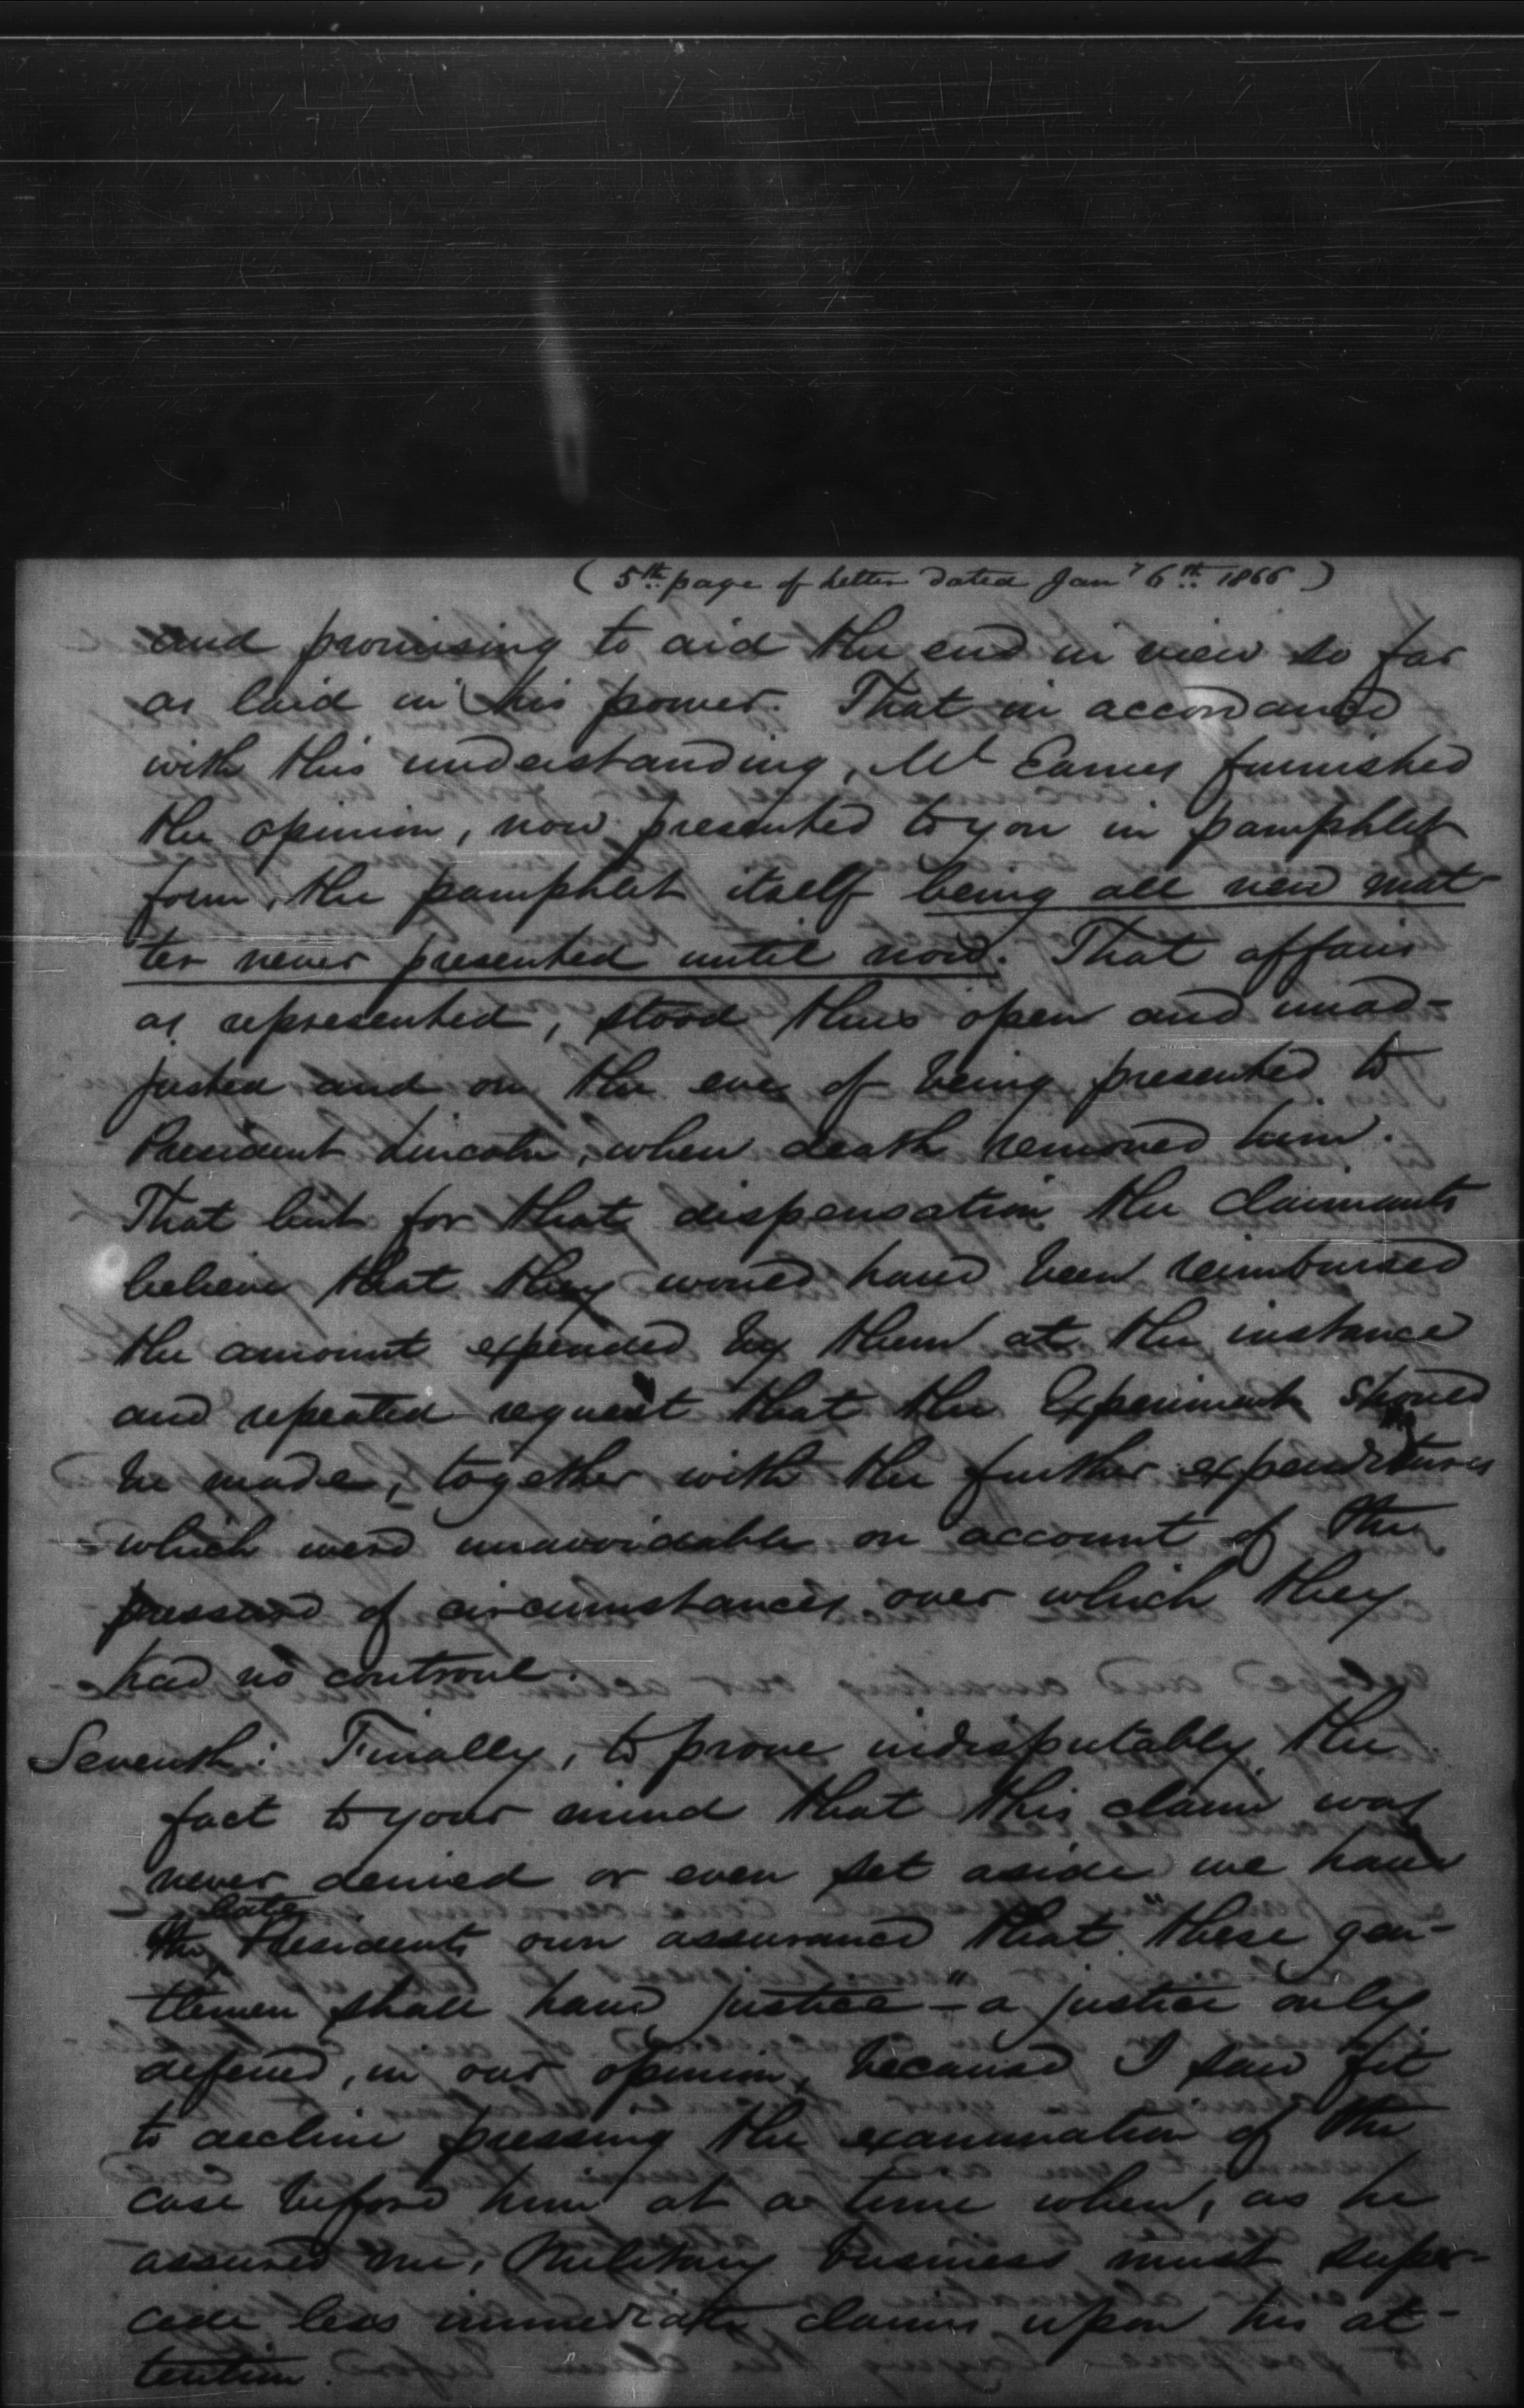 (5th page of letter dated Jany 6th 1866)
and promising to aid the end in view so far
as laid in his power. That in accordance
with this understanding, Mr Eames furnished
the opinion, now presented to you in pamphlet
form, the pamphlet itself being all new mat-
ter never presented until now. That affair
as represented, stood thus open and unad-
justed and on the eve of being presented to
President Lincoln, when death removed him.
That but for that dispensation the claimants
believe that they would have been reimbursed
the amount expended by them at the instance
and repeated request that the Experiment should
be made, together with the further expenditures
which were unavoidable on account of the
pressure of circumstances over which they
had no controul.
Seventh: Finally, to prove indisputably the
fact to your mind that this claim was
never denied or even set aside we have
late
the Presidents own assurance that "these gen-
tlemen shall have justice"- a justice only
defered, in our opinion, because I saw fit
to decline pressing the examination of the
case before him at a time when, as he
assured me, Military business must super-
cede less immediate claims upon his at-
tention.